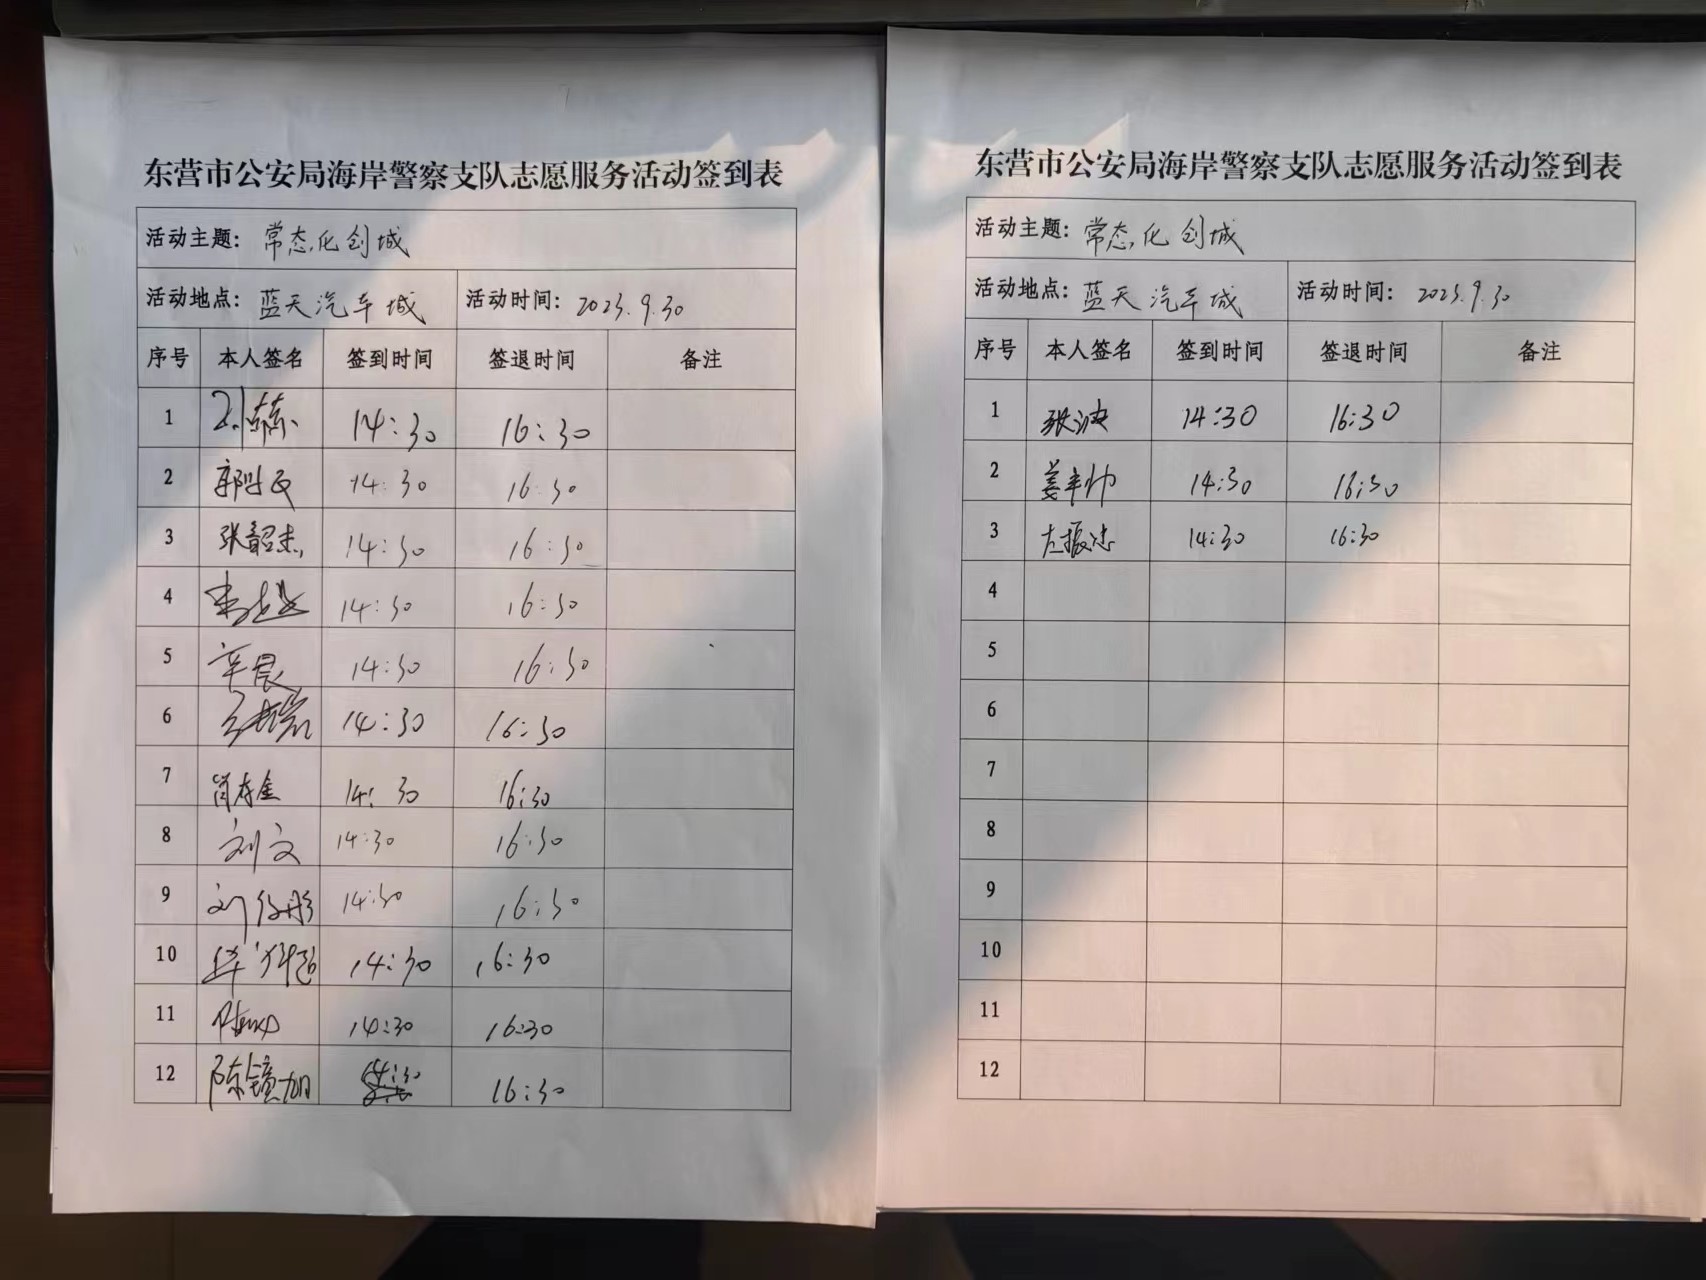 东营市公安局海岸警察支队志愿服务活动签到表
活动主题：常态化创城
活动地点：蓝天汽车城 活动时间：2023.9.30
序号 本人签名 签到时间 签退时间 备注
1 14:30 16:30
2 14:30 16:30
3 张韶杰 14:30 16:30
4 14:30 16:30
5 辛晨 14:30 16:30
6 14:30 16:30
7 肖寿金 14:30 16:30
8 刘文 14:30 16:30
9 刘 14:30 16:30
10 14:30 16:30
11 14:30 16:30
12 陈镜旭 14:30 16:30
东营市公安局海岸警察支队志愿服务活动签到表
活动主题：常态化创城
活动地点：蓝天汽车城 活动时间：2023.9.30
序号 本人签名 签到时间 签退时间 备注
1 张波 14:30 16:30
2 姜丰帅 14:30 16:30
3 左振忠 14:30 16:30
4
5
6
7
8
9
10
11
12